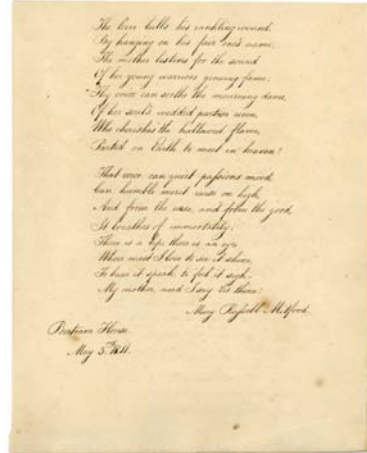 The lover lulls his rankling wound,
By hanging on his fair one's name;
The mother listens for the sound
Of her young warriors growing fame;
Thy voice can soothe the mourning dame,
Of her soul's wedded partner riven,
Who cherishes the hallowed flame,
Parted on Earth to meet in heaven!
That voice can quiet passions mood
Can humble merit raise on high,
And from the wise, and from the good,
It breathes of immortality;
There is a lip, there is an eye
Where most I love to see it shine,
To hear it speak, to feel it sigh,
My mother, need I say 'tis thine!
Mary Russell Mitford.
Bertram House
May 3.rd 1811.